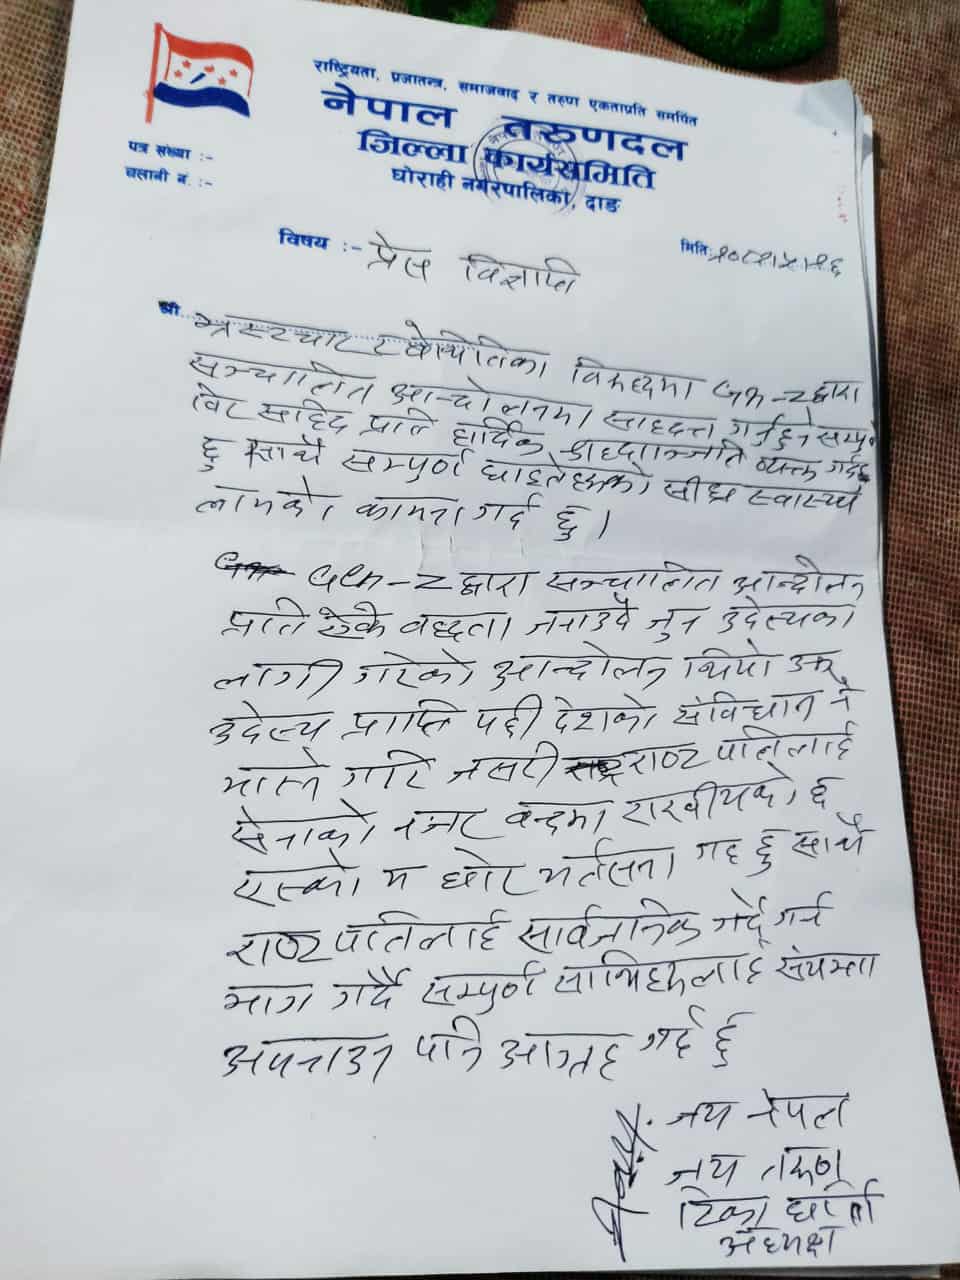 राष्ट्रियता, प्रजातन्त्र, समाजवाद र तरुण एकताप्रति समर्पित
नेपाल तरुणदल
जिल्ला कार्यसमिति
घोराही नगरपालिका, दाङ
पत्र संख्या :-
चलानी नं. :-
मिति:
विषय :- प्रेस विज्ञप्ति
श्री
विरुद्धमा Gen-z द्वारा
सञ्चालित आन्दोलनमा साहदत्त गर्नुहुने सम्पुर्ण
विर साहिद प्रति हार्दिक श्रध्दाञ्जली व्यक्त गर्दछु
छु साथै सम्पुर्ण घाइतेहरुको सीघ्र स्वास्थ्य
लाभको कामना गर्द छु ।
Gen-z द्वारा सञ्चालित आन्दोलन
प्रति ऐक्य वद्धता जनाउदै जुन उदेस्यका
लागी गरेको आन्दोलन थियो
उदेस्य प्राप्ति पछी देशको संविधान नै
गरि जसरी राष्ट्र पतिलाई
सेनाको नजर वन्दमा राखीयको छ
यस्को म घोर भर्त्सना गर्द छु साथै
राष्ट्र पतिलाई सार्वजनिक गर्दै गर्न
माग गर्दै सम्पुर्ण साथिहरुलाई संयमता
अपनाउन पनि आग्रह गर्द छु
जय नेपाल
जय तरुण
टिका घर्ती
अध्यक्ष